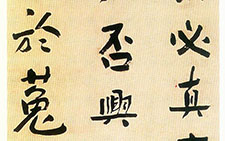 必真
否興
於菟